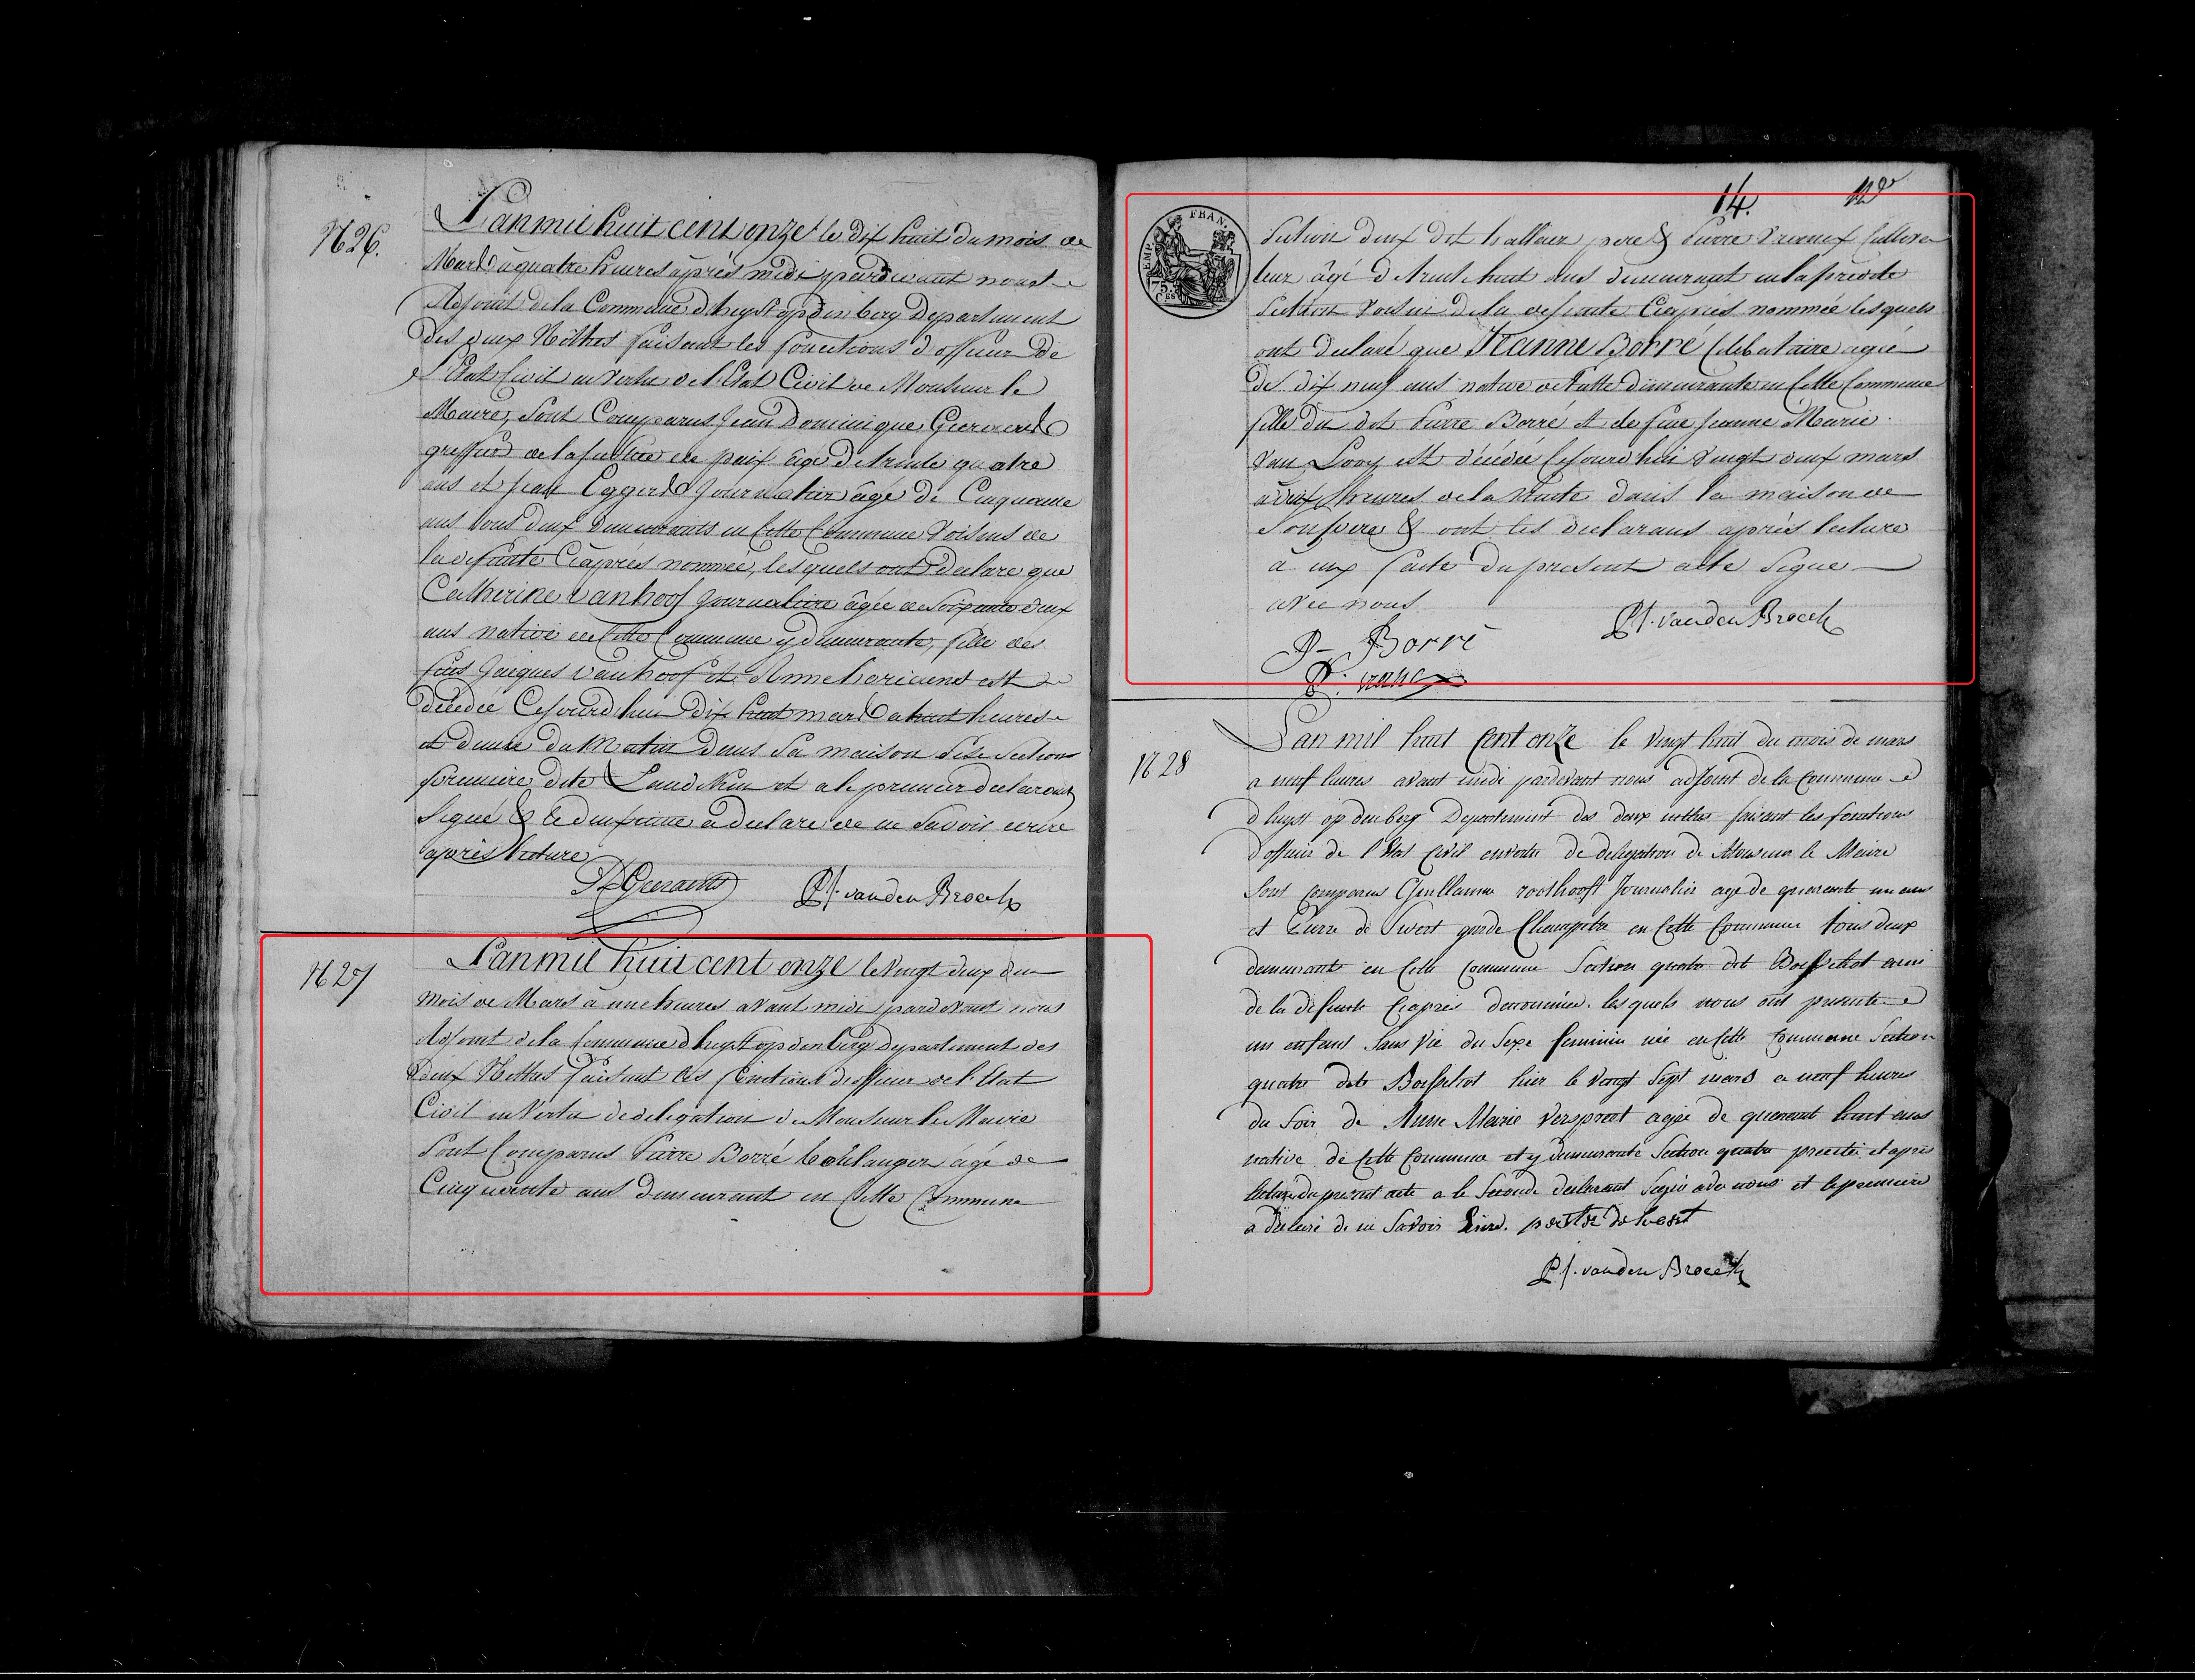 N 26.
L'an mil huit cent onze le dix huit du mois de
Mars à quatre heures après midi pardevant nous
Adjoint de la Commune d'heyst op den berg Departement
des deux Nèthes faisant les fonctions d'officier de
L'Etat Civil en vertu de l'Etat Civil de Monsieur le
Maire, sont Comparus Jean Dominique Geeraerts
greffier de la justice de paix âgé de trente quatre
ans et Jean Eggers Journalier âgé de Cinquante
ans tous deux demeurants en Cette Commune Voisins de
la defunte Ciaprès nommée, lesquels ont declare que
Catherine Vanhoof Journaliere âgée de soixante deux
ans native de Cette Commune y demeurante, fille des
feus Jacques Vanhoof et Anne est
décédée Cejourd'hui dix huit mars a huit heures
et demie du Matin dans sa maison sise Section
premiere dite et a le premier declarant
Signé & le deuxieme a declare de ne savoir ecrire
après lecture
JD Geeraerts PJ. van den Broeck
N 27
L'an mil huit cent onze le vingt deux du
mois de Mars à onze heures avant midi pardevant nous
Adjoint de la Commune d'heyst op den berg Departement des
deux Nethes faisant les fonctions d'officier de l'Etat
Civil en Vertu de delegation de Monsieur le Maire
Sont Comparus Pierre Borré boulanger âgé de
Cinquante ans demeurant en Cette Commune
14. 12
TIMP. FRAN.
75. Ces
Section deux dit hallaer pere & Pierre cultiva
teur âgé de trente huit ans demeurant en la predte
Section Voisin de la defunte Ciaprès nommée lesquels
ont declaré que Jeanne Borré Celibataire agée
de dix neuf ans native de Putte demeurante en Cette Commune
fille du dit Pierre Borré et de feue Jeanne Marie
Van Looy est décédée Cejourd'hui vingt deux mars
à dix heures de la dans la maison de
Son pere & ont les declarans après lecture
a eux faite du present acte signé
avec nous
P. Borré PJ. van den Broeck
P.
N 28
L'an mil huit Cent onze le vingt huit du mois de mars
a neuf heures avant midi pardevant nous adjoint de la Commune
d'heyst op den berg Departement des deux nethes faisant les fonctions
d'officier de l'Etat Civil en vertu de delegation de Monsieur le Maire
Sont Comparus Guillaume roothooft Journalier age de quarente un ans
et Pierre de Weert garde Champetre en Cette Commune tous deux
demeurants en Cette Commune Section quatre dit Boisschot amis
de la defunte Ciaprès denommée. lesquels nous ont presente
un enfant Sans Vie du Sexe feminin née en Cette Commune Section
quatre dite Boisschot hier le vingt sept mars a neuf heures
du Soir de Anne Marie Verspreet agée de quarent huit ans
native de Cette Commune et y demeurante Section quatre et après
lecture du present acte a le Second declarant Signé avec nous et le premier
a declaré de ne Savoir peeter de weert
PJ. van den Broeck